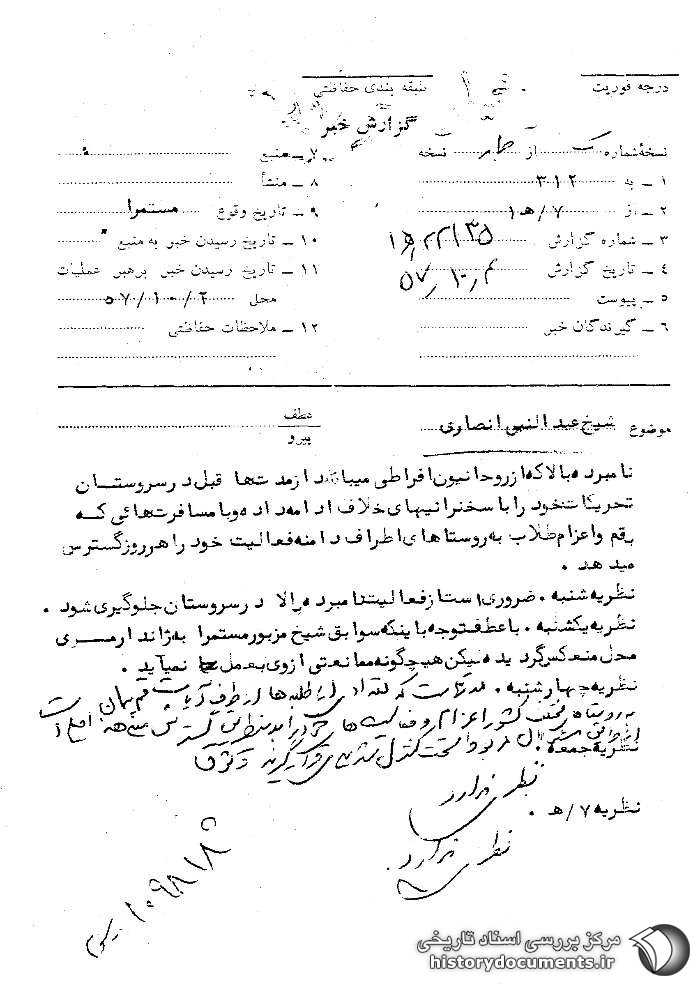 درجه فوریت
طبقه بندی حفاظتی
گزارش خبر
نسخهٔ شماره از نسخه
۱ ــ به ۳۱۲
۲ ــ از ۷/هـ۱
۳ ــ شماره گزارش
۴ ــ تاریخ گزارش
۵ ــ پیوست
۶ ــ گیرندگان خبر
۷ ــ منبع
۸ ــ منشأ
۹ ــ تاریخ وقوع مستمرا
۱۰ ــ تاریخ رسیدن خبر به منبع
۱۱ ــ تاریخ رسیدن خبر برهبر عملیات
محل ۵۷/۱۰/۲
۱۲ ــ ملاحظات حفاظتی
موضوع شیخ عبدالنبی انصاری
عطف
پیرو
نامبرده بالا که از روحانیون افراطی میباشد از مدتها قبل در سروستان
تحریکات خود را با سخنرانیهای خلاف ادامه داده و با مسافرت‌هائی که
بقم و اعزام طلاب به روستاهای اطراف دامنه فعالیت خود را هر روز گسترس
میدهد .
نظریه شنبه . ضروری است از فعالیت نامبرده بالا در سروستان جلوگیری شود .
نظریه یکشنبه . با عطف توجه با ینکه سوابق شیخ مزبور مستمرا به ژاندارمری
محل منعکس گردیده لیکن هیچگونه ممانعتی از وی بعمل نمیآید .
نظریه چهارشنبه . مدتهاست که تعدادی از طلبه‌ها از طرف آیات قم
به روستاهای مختلف کشور اعزام و فعالیت‌های
نظریه جمعه .
نظری ندارد
نظریه ۷/هـ .
نظری ندارد
مرکز بررسی اسناد تاریخی
historydocuments.ir